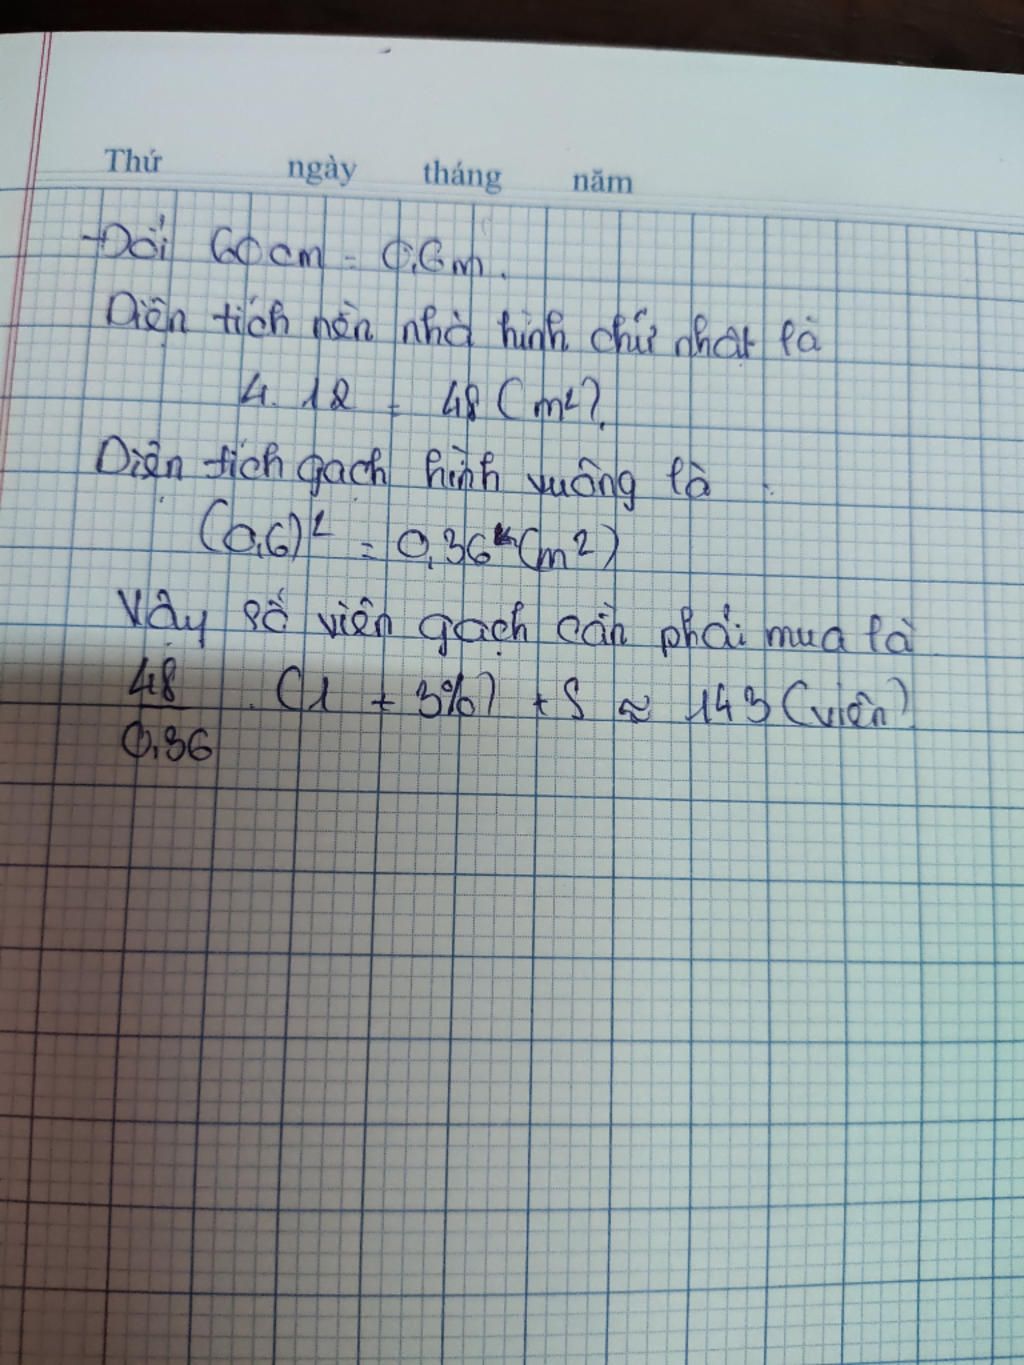 Thứ ngày tháng năm
-Đổi 60 cm = 0,6 m.
Diện tích nền nhà hình chữ nhật là
4. 12 = 48 (m²).
Diện tích gạch hình vuông là
(0,6)² = 0,36 (m²)
Vậy số viên gạch cần phải mua là
48/0,36 . (1 + 3%) + 5 ≈ 143 (viên)